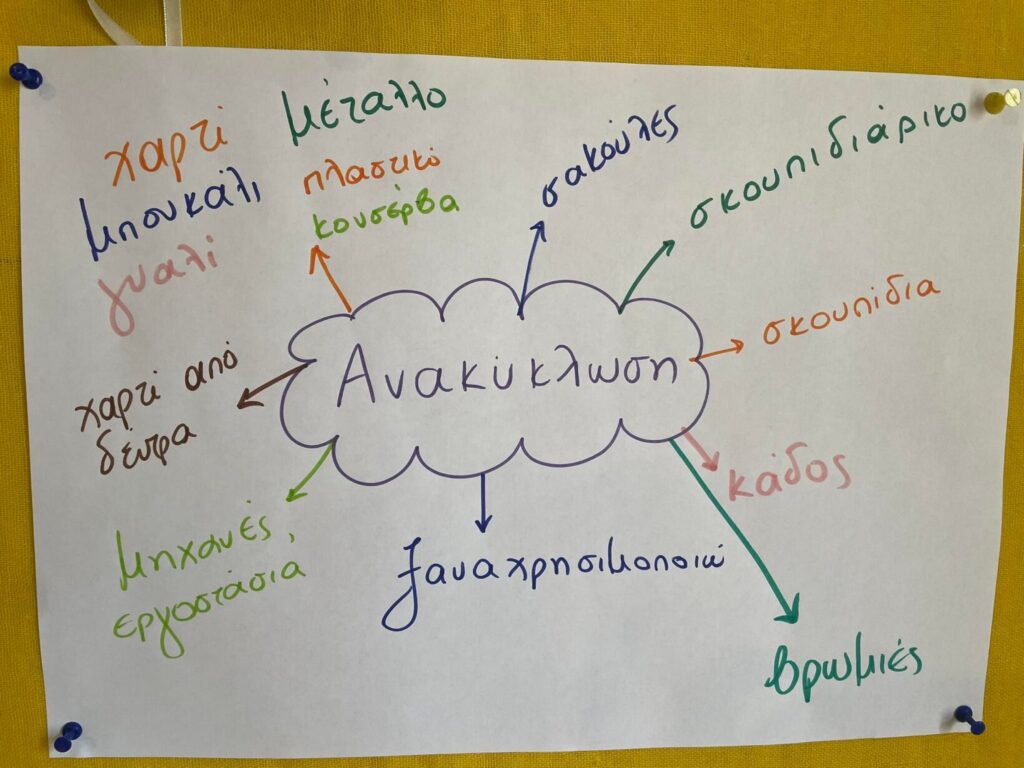 χαρτί
μέταλλο
μπουκάλι
πλαστικό
γυαλί
κονσέρβα
σακούλες
σκουπιδιάρικο
σκουπίδια
Ανακύκλωση
χαρτί από
δέντρα
κάδος
μηχανές,
εργοστάσια
ξαναχρησιμοποιώ
βρωμιές